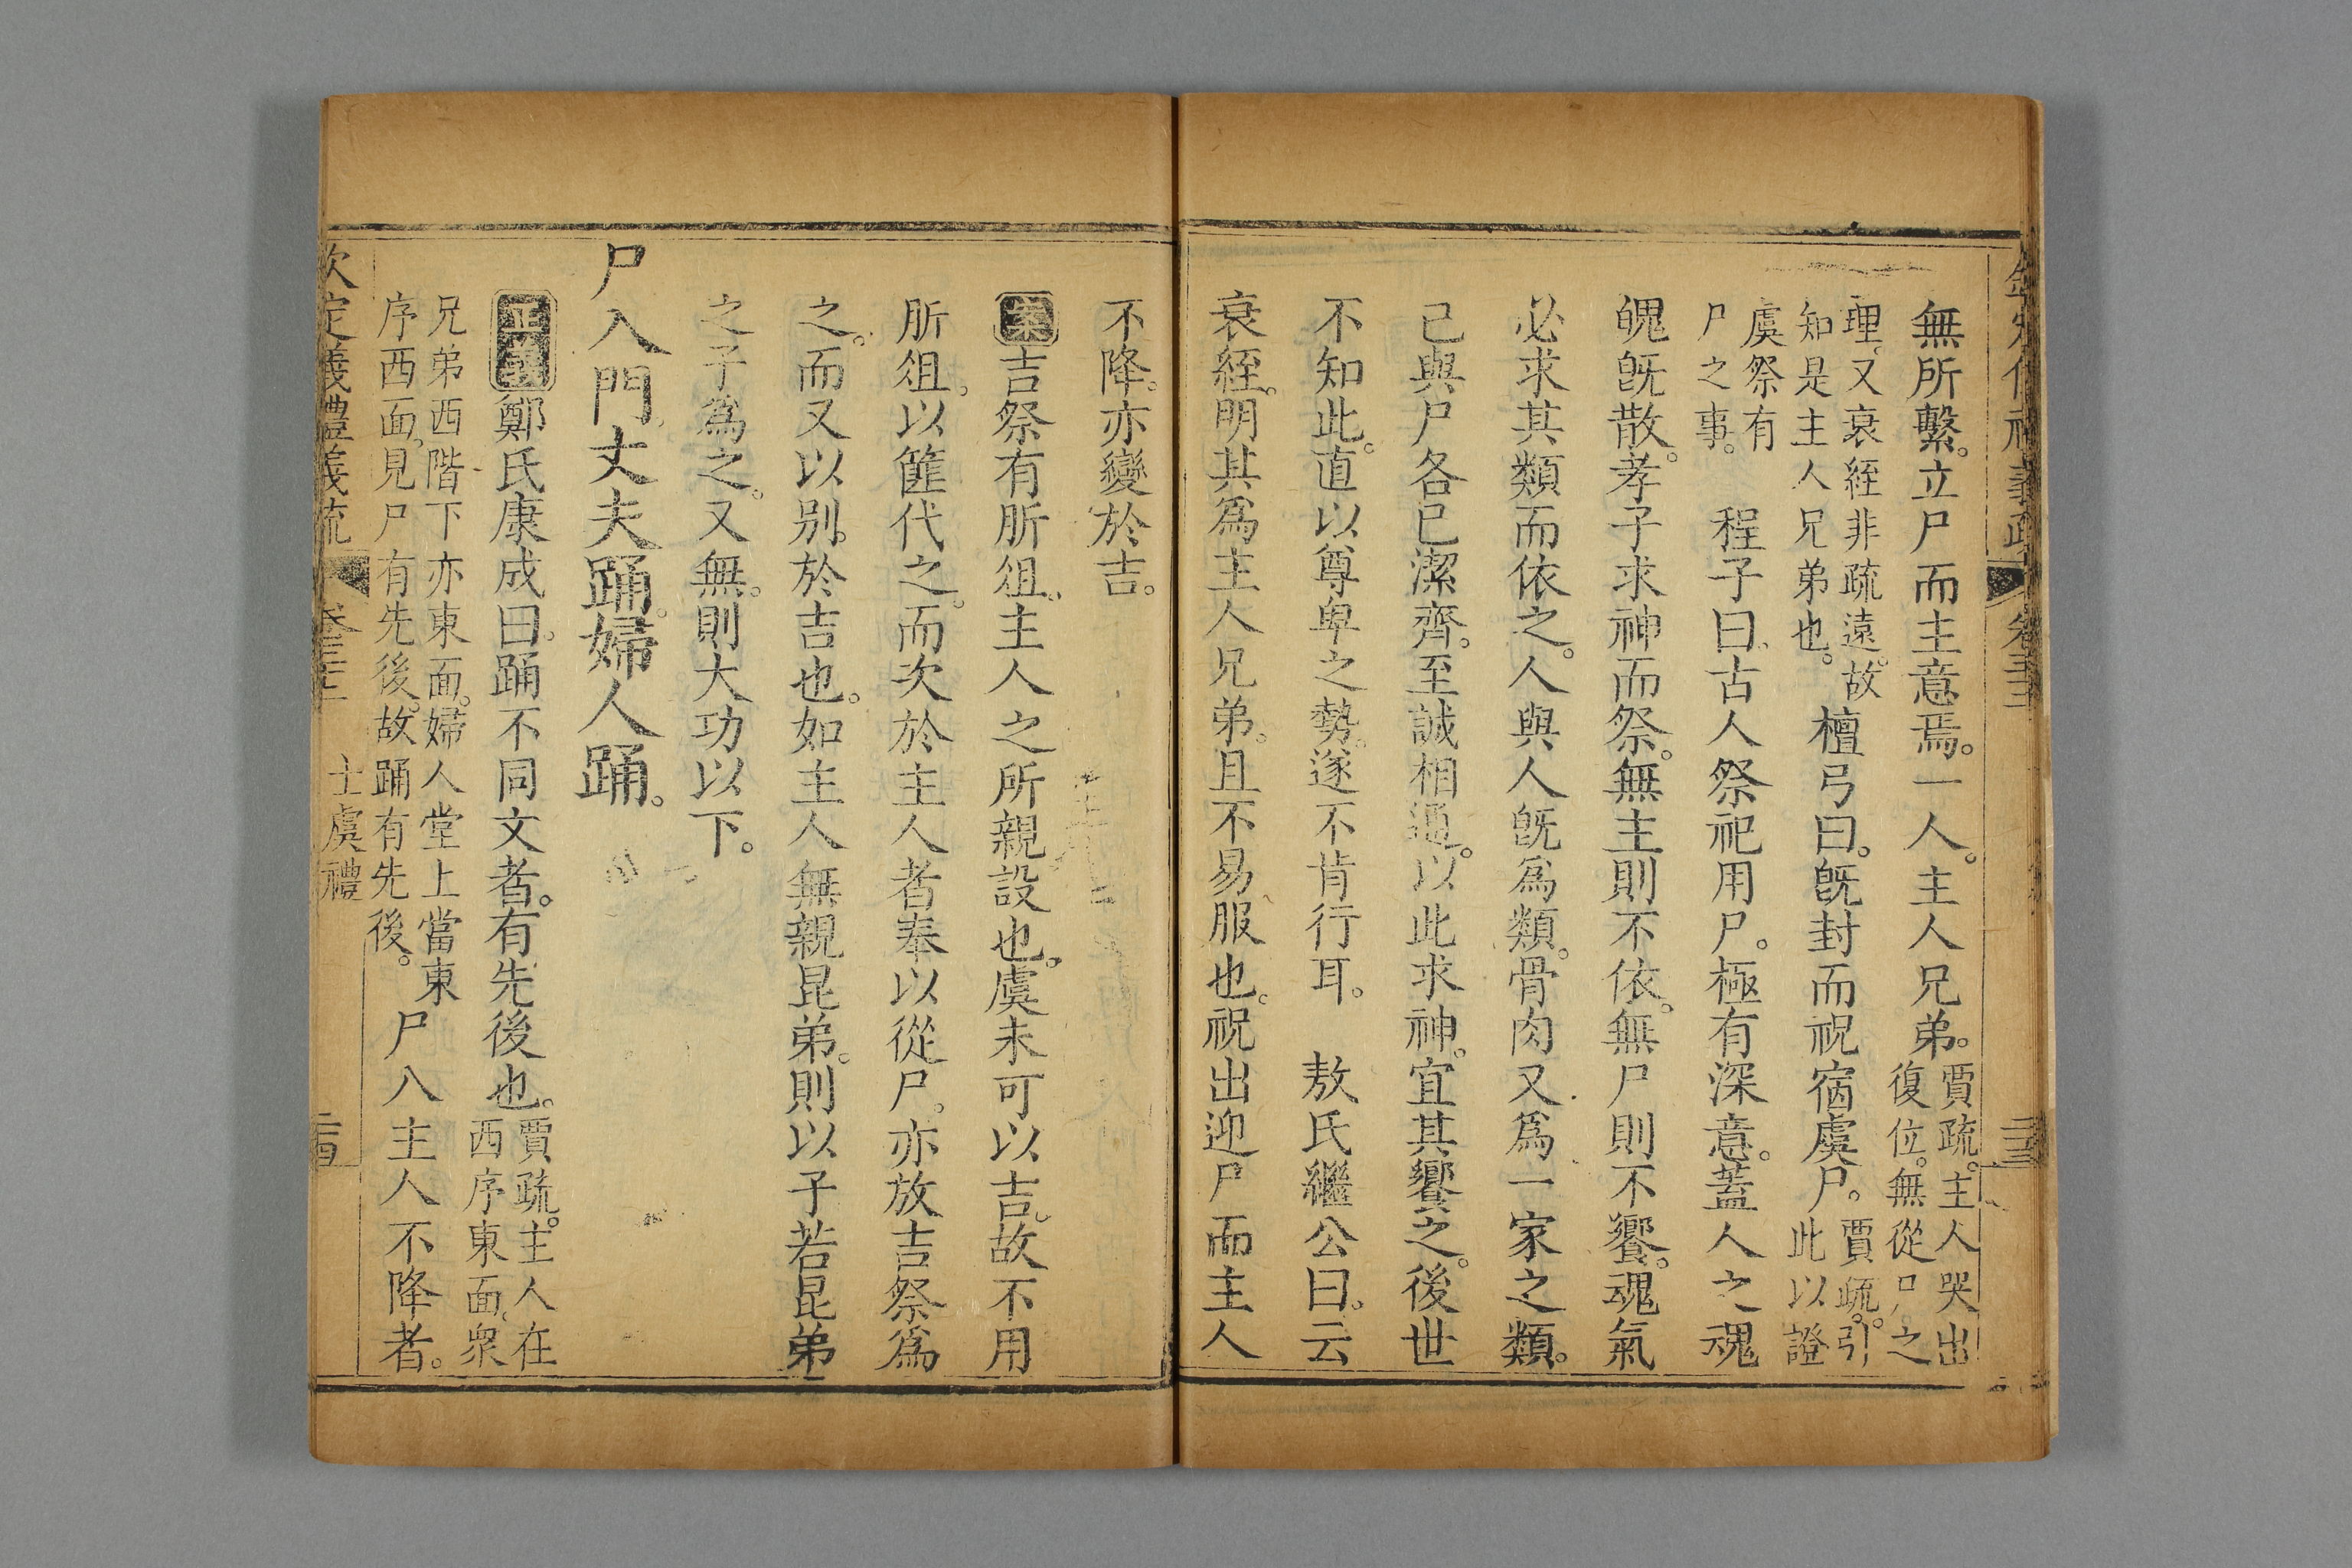 欽定儀禮義疏 卷三十三
無所繫。立尸而主意焉。一人。主人兄弟。賈疏。主人哭出
復位。無從尸之
理。又衰絰非疏遠。故
知是主人兄弟也。檀弓曰。旣封而祝宿虞尸。賈疏。引
此以證
虞祭有
尸之事。程子曰。古人祭祀用尸。極有深意。蓋人之魂
魄旣散。孝子求神而祭。無主則不依。無尸則不饗。魂氣
必求其類而依之。人與人旣爲類。骨肉又爲一家之類。
己與尸各已潔齊。至誠相通。以此求神。宜其饗之。後世
不知此。直以尊卑之勢。遂不肯行耳。 敖氏繼公曰。云
衰絰。明其爲主人兄弟。且不易服也。祝出迎尸而主人
不降。亦變於吉。
案吉祭有肵俎。主人之所親設也。虞未可以吉。故不用
肵俎。以篚代之。而次於主人者奉以從尸。亦放吉祭爲
之。而又以别於吉也。如主人無親昆弟。則以子若昆弟
之子爲之。又無。則大功以下。
尸入門。丈夫踊。婦人踊。
正義鄭氏康成曰。踊不同文者。有先後也。賈疏。主人在
西序東面。衆
兄弟西階下亦東面。婦人堂上當東
序西面。見尸有先後。故踊有先後。尸入主人不降者。
欽定儀禮義疏 卷三十三 士虞禮 二四